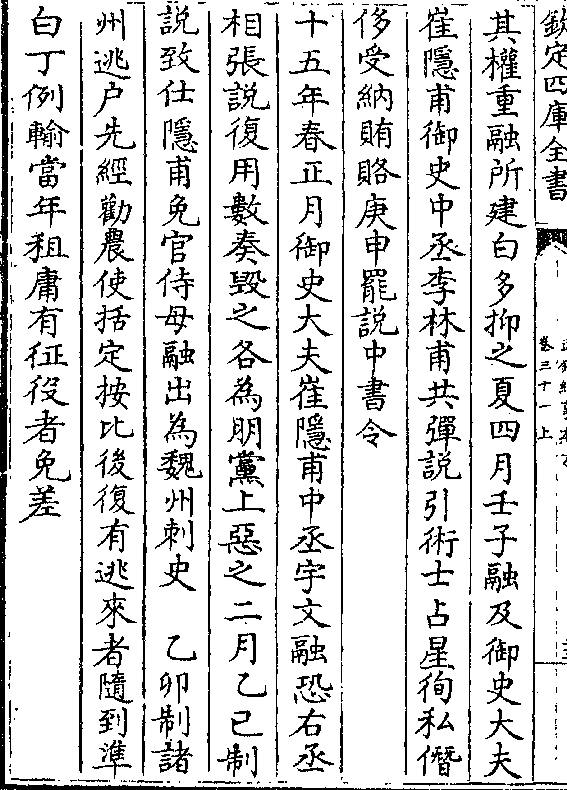 欽定四庫全書
卷三十一上
其權重融所建白多抑之夏四月壬子融及御史大夫
崔隱甫御史中丞李林甫共彈說引術士占星徇私僭
侈受納賄賂庚申罷說中書令
十五年春正月御史大夫崔隱甫中丞宇文融恐右丞
相張說復用數奏毀之各為朋黨上惡之二月乙巳制
說致仕隱甫免官侍母融出為魏州刺史　乙卯制諸
州逃户先經勸農使括定按比後復有逃來者隨到準
白丁例輸當年租庸有征役者免差